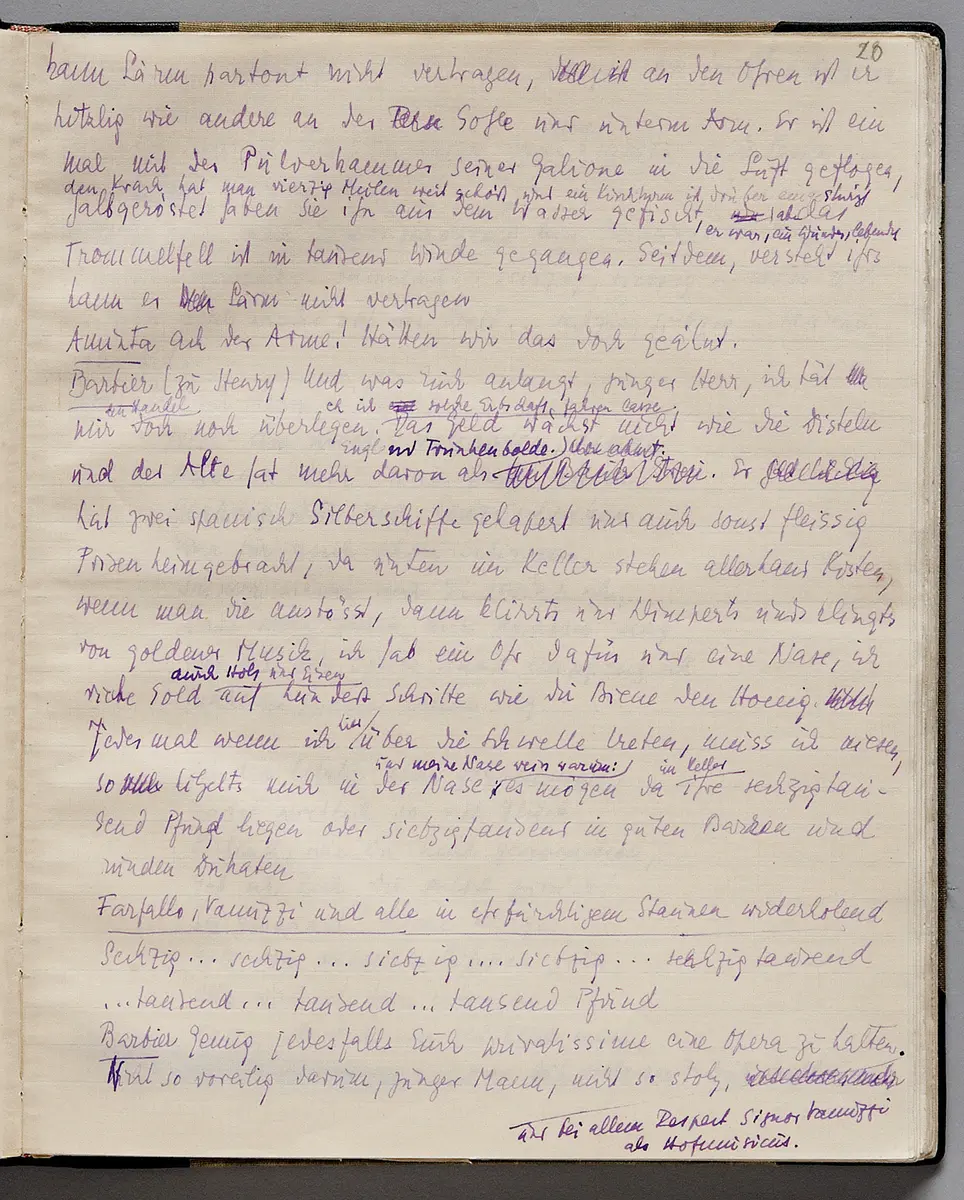 20
kann Lärm partout nicht vertragen, an den Ohren ist er
kitzlig wie andere an der Sohle und unterm Arm. Er ist ein
mal mit der Pulverkammer seiner Galione in die Luft geflogen,
den Krach hat man vierzig Meilen weit gehört, und ein Kirchturm ist drüber eingestürzt
halbgeröstet haben sie ihn aus dem Wasser gefischt, aber das
er war, ein lebende
Trommelfell ist in tausend Winde gegangen. Seitdem, versteht ihrs
kann er Lärm nicht vertragen
Aminta ach der Arme! Hätten wir das doch geahnt.
Barbier (zu Henry) Und was Euch anlangt, junger Herr, ich tät
den Handel eh ich solche Erbschaft fahren lasse.
mir doch noch überlegen. Das Geld wächst nicht wie die Disteln
und Trunkenbolde. ahnt.
und der Alte hat mehr davon als. Er
hat zwei spanisch Silberschiffe gekapert und auch sonst fleissig
Prisen heimgebracht, da unten im Keller stehen allerhand Kisten,
wenn man die anstösst, dann klirrts und klimperts und klingts
von goldener Musik, ich hab ein Ohr dafür und eine Nase, ich
durch Holz und Eisen
rieche Gold auf hundert Schritte wie die Biene den Honig.
Jedes mal wenn ich hier über die Schwelle treten, muss ich niesen,
und meine Nase weis warum: im Keller
so kitzelts mich in der Nase, es mögen da ihre sechzigtau-
send Pfund liegen oder siebzigtausend in guten Barren und
runden Dukaten
Farfallo, Vanuzzi und alle in ehrfürchtigem Staunen wiederholend
Sechzig... sechzig... siebzig.... siebzig... sechzigtausend
...tausend... tausend... tausend Pfund
Barbier Genug jedesfalls Euch privatissime eine Opera zu halten.
Nicht so voreilig darum, junger Mann, nicht so stolz,
und bei allem Respect Signor Vanuzzi
als Hofmusicus.